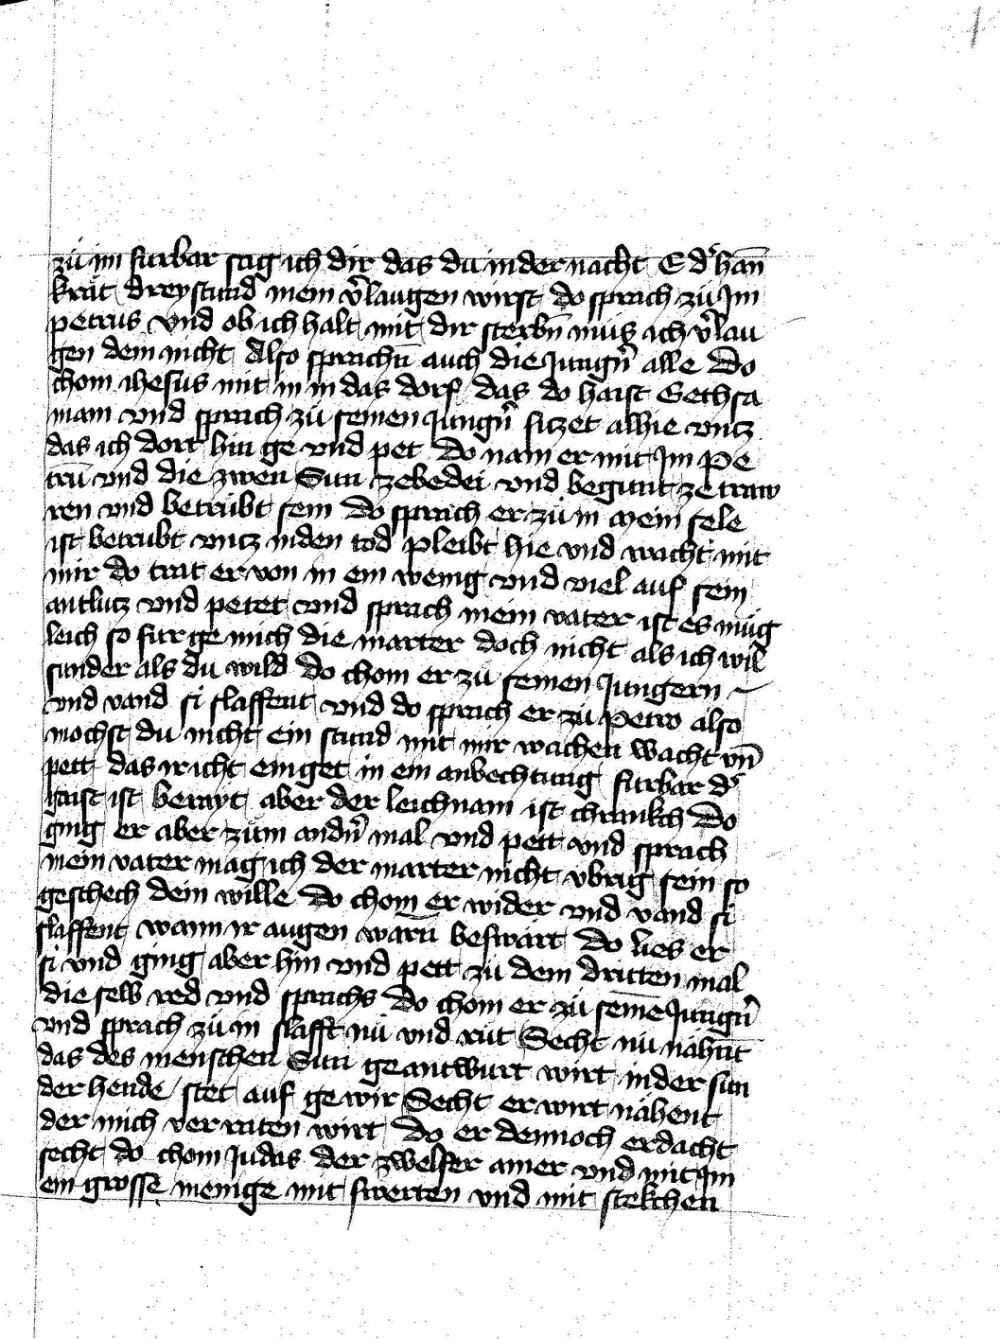 1
zů im furbar sag ich dir das du in der nacht E d' han̄
krät dreystund mein v'laugen wirst do sprach zů Im
petrus vnd ob ich halt mit dir sterbn̄ můs ich v'lau
gen dein nicht Also sprachn̄ auch die Jungn̄ alle Do
chom ihesus mit in in das dorf das do haist Gethsa
mani vnd sprach zů seinen Jungn̄ siczet alhie vncz
das ich dort hin ge vnd pet Do nam er mit Im Pe
trū vnd die zwen Sun zebedei vnd begunt ze traw
ren vnd betrübt sein Do sprach er zů in Mein sele
ist betrubt vncz in den tod pleibt hie vnd wacht mit
mir do trat er von in ein wenig vnd viel auf sein
antlucz vnd petet vnd sprach mein vater ist es müg
leich so fur ge mich die marter doch nicht als ich wil
sunder als du wild do chom er zů seinen Jungern
vnd vand si slaffent vnd do sprach er zů Petro also
mochst du nicht ein stund mit mir wachen wacht vn̄
pett das ir icht einget in ein anvechtung furbar d'
gaist ist berayt aber der leichnam ist chrankch Do
ging er aber zum andn̄ mal vnd pett vnd sprach
mein vater mag ich der marter nicht vbrig sein so
geschech dein wille do chom er wider vnd vand si
slaffent wann ir augen warn̄ beswärt do lies er
si vnd ging aber hin vnd pett zu dem dritten mal
die selb red vnd sprachs Do chom er zů seinē Jungn̄
vnd sprach zů in slafft nů vnd rüt Secht nu nähn̄t
das des menschen Sun geantwurt wirt in der sun
der hende stet auf ge wir Secht er wirt nähent
der mich verraten wirt Do er dennoch erdacht
secht do chom Judas der zwelfer ainer vnd mit Im
ein grosse menige mit swerten vnd mit stekchen